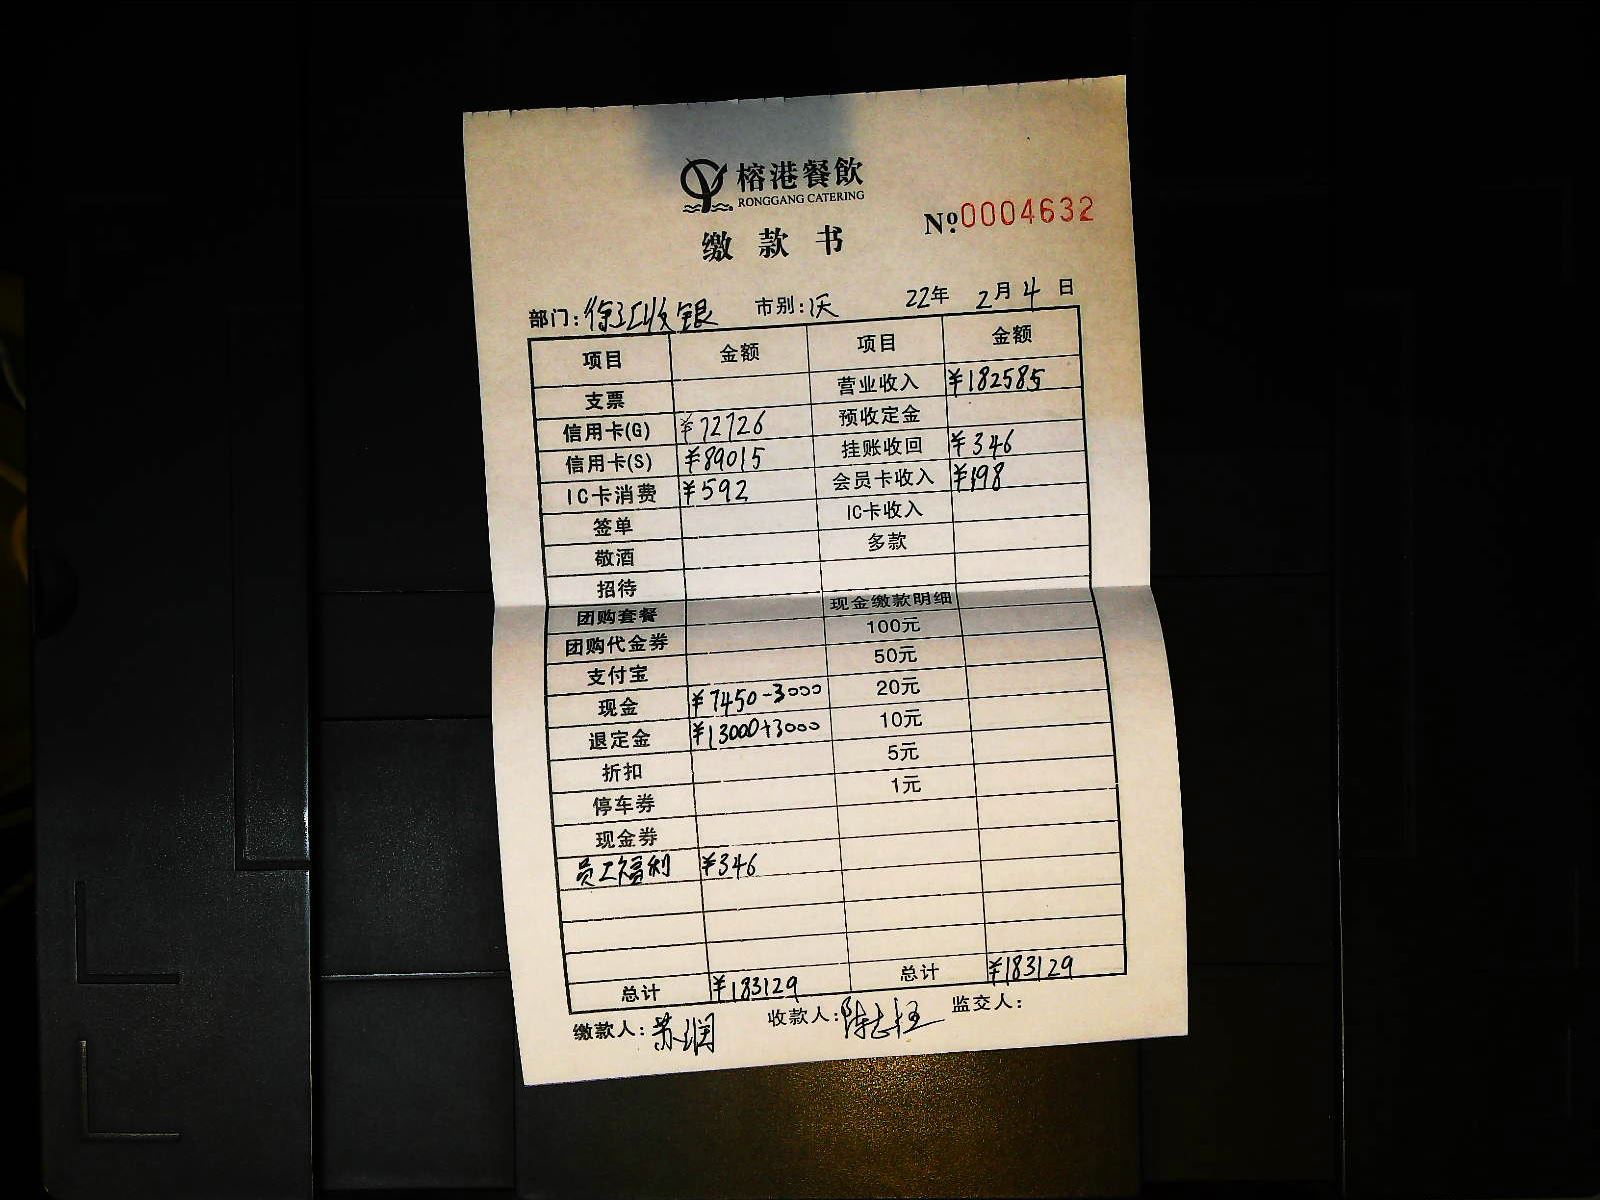 榕港餐飲
RONGGANG CATERING
缴款书
№0004632
部门:徐汇收银 市别: 22年 2月4日
项目 金额 项目 金额
支票 营业收入 ¥182585
信用卡(G) ¥72726 预收定金
信用卡(S) ¥89015 挂账收回 ¥346
IC卡消费 ¥592 会员卡收入 ¥198
签单 IC卡收入
敬酒 多款
招待
团购套餐 现金缴款明细
团购代金券 100元
支付宝 50元
现金 ¥7450-3000 20元
退定金 ¥13000+3000 10元
折扣 5元
停车券 1元
现金券
员工福利 ¥346
总计 ¥183129 总计 ¥183129
缴款人:苏润 收款人:陈志 监交人: